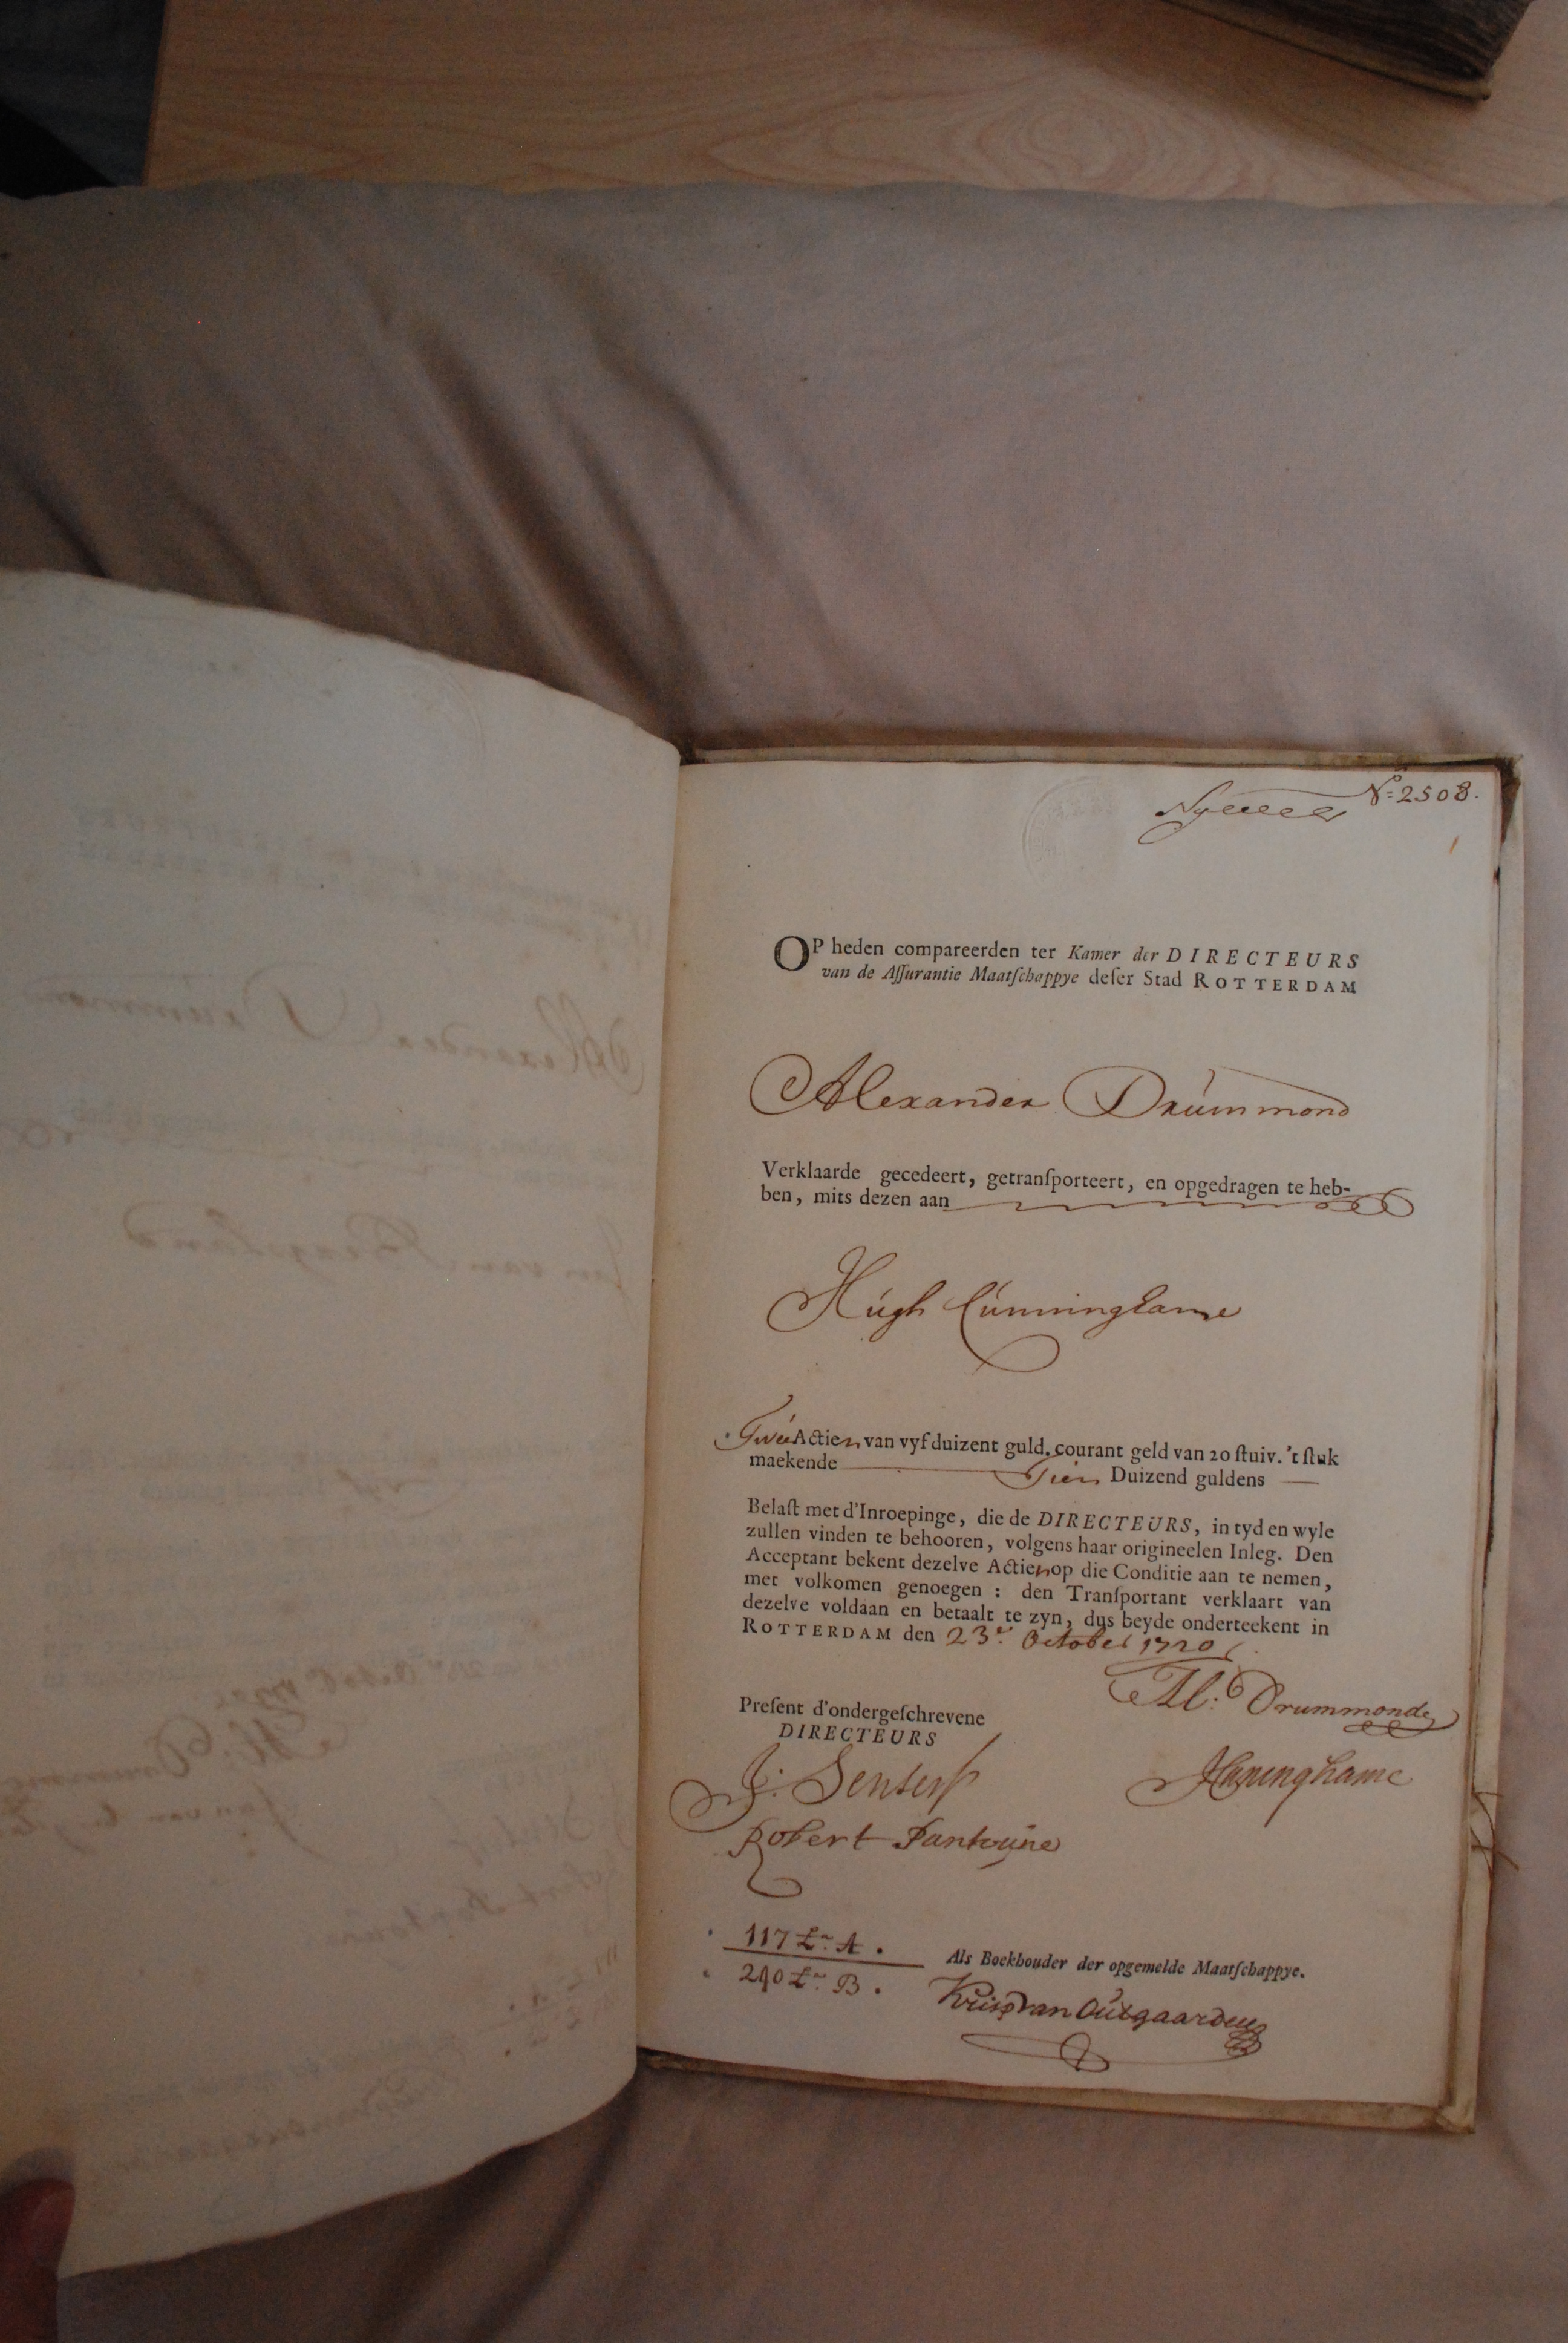 N:o 2508.
OP heden compareerden ter Kamer der DIRECTEURS
van de Aſſurantie Maatſchappye deſer Stad ROTTERDAM
Alexander Drúmmond
Verklaarde gecedeert, getranſporteert, en opgedragen te heb-
ben, mits dezen aan
Húgh Cúnninghame
Twee Actien van vyf duizent guld. courant geld van 20 ſtuiv. 't ſtuk
maekende Tien Duizend guldens
Belaſt met d'Inroepinge, die de DIRECTEURS, in tyd en wyle
zullen vinden te behooren, volgens haar origineelen Inleg. Den
Acceptant bekent dezelve Actien op die Conditie aan te nemen,
met volkomen genoegen : den Tranſportant verklaart van
dezelve voldaan en betaalt te zyn, dus beyde onderteekent in
ROTTERDAM den 23e October 1720
Al: Drummonde
Preſent d'ondergeſchrevene
DIRECTEURS
J: Senserf
Robert
117 Lr A.
240 Lr B.
Als Boekhouder der opgemelde Maatſchappye.
van Outgaarden